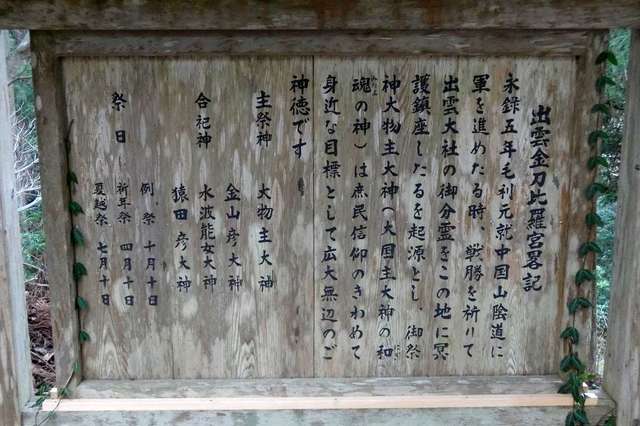 出雲金刀比羅宮畧記
永録五年毛利元就中国山陰道に
軍を進めたる時、戦勝を祈りて
出雲大社の御分霊をこの地に冥
護鎮座したるを起源とし、御祭
神大物主大神(大国主大神の和
魂の神)は庶民信仰のきわめて
身近な目標として広大無辺のご
神徳です
主祭神 大物主大神
金山彦大神
合祀神 水波能女大神
猿田彦大神
祭日 例祭 十月十日
祈年祭 四月十日
夏越祭 七月十日